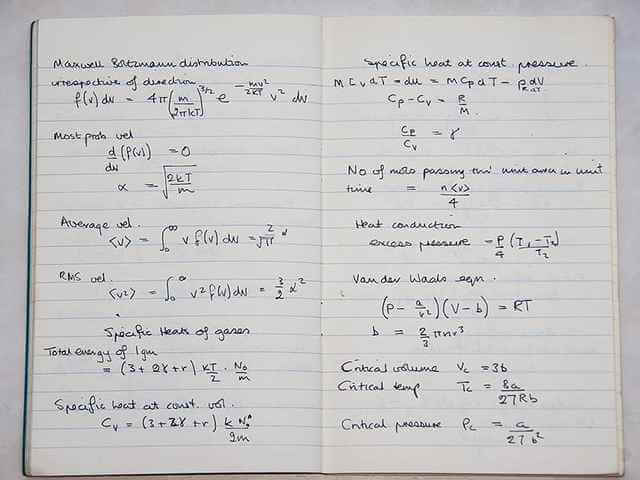 Maxwell Boltzmann distribution
irrespective of direction
f(v) dv = 4π(m/2πkT)^3/2 e^-mv²/2kT v² dv
Most prob vel
d/dv (f(v)) = 0
α = √(2kT/m)
Average vel.
<v> = ∫₀^∞ v f(v) dv = 2/√π α
RMS vel.
<v²> = ∫₀^∞ v² f(v) dv = 3/2 α²
Specific Heats of gases
Total energy of 1gm
= (3 + 2γ + r) kT/2 . N₀/m
Specific heat at const. vol.
Cv = (3 + 2γ + r) k N₀/2m
Specific heat at const. pressure.
M Cv dT = du = M Cp dT - p dV
Cp - Cv = R/M.
Cp/Cv = γ
No of mols passing thro' unit area in unit
time = n<v>/4
Heat conduction
excess pressure = P/4 (T₁ - T₂/T₂)
Van der Waals eqn.
(P - a/v²)(V - b) = RT
b = 2/3 π n r³
Critical volume Vc = 3b
Critical temp Tc = 8a/27Rb
Critical pressure Pc = a/27b²